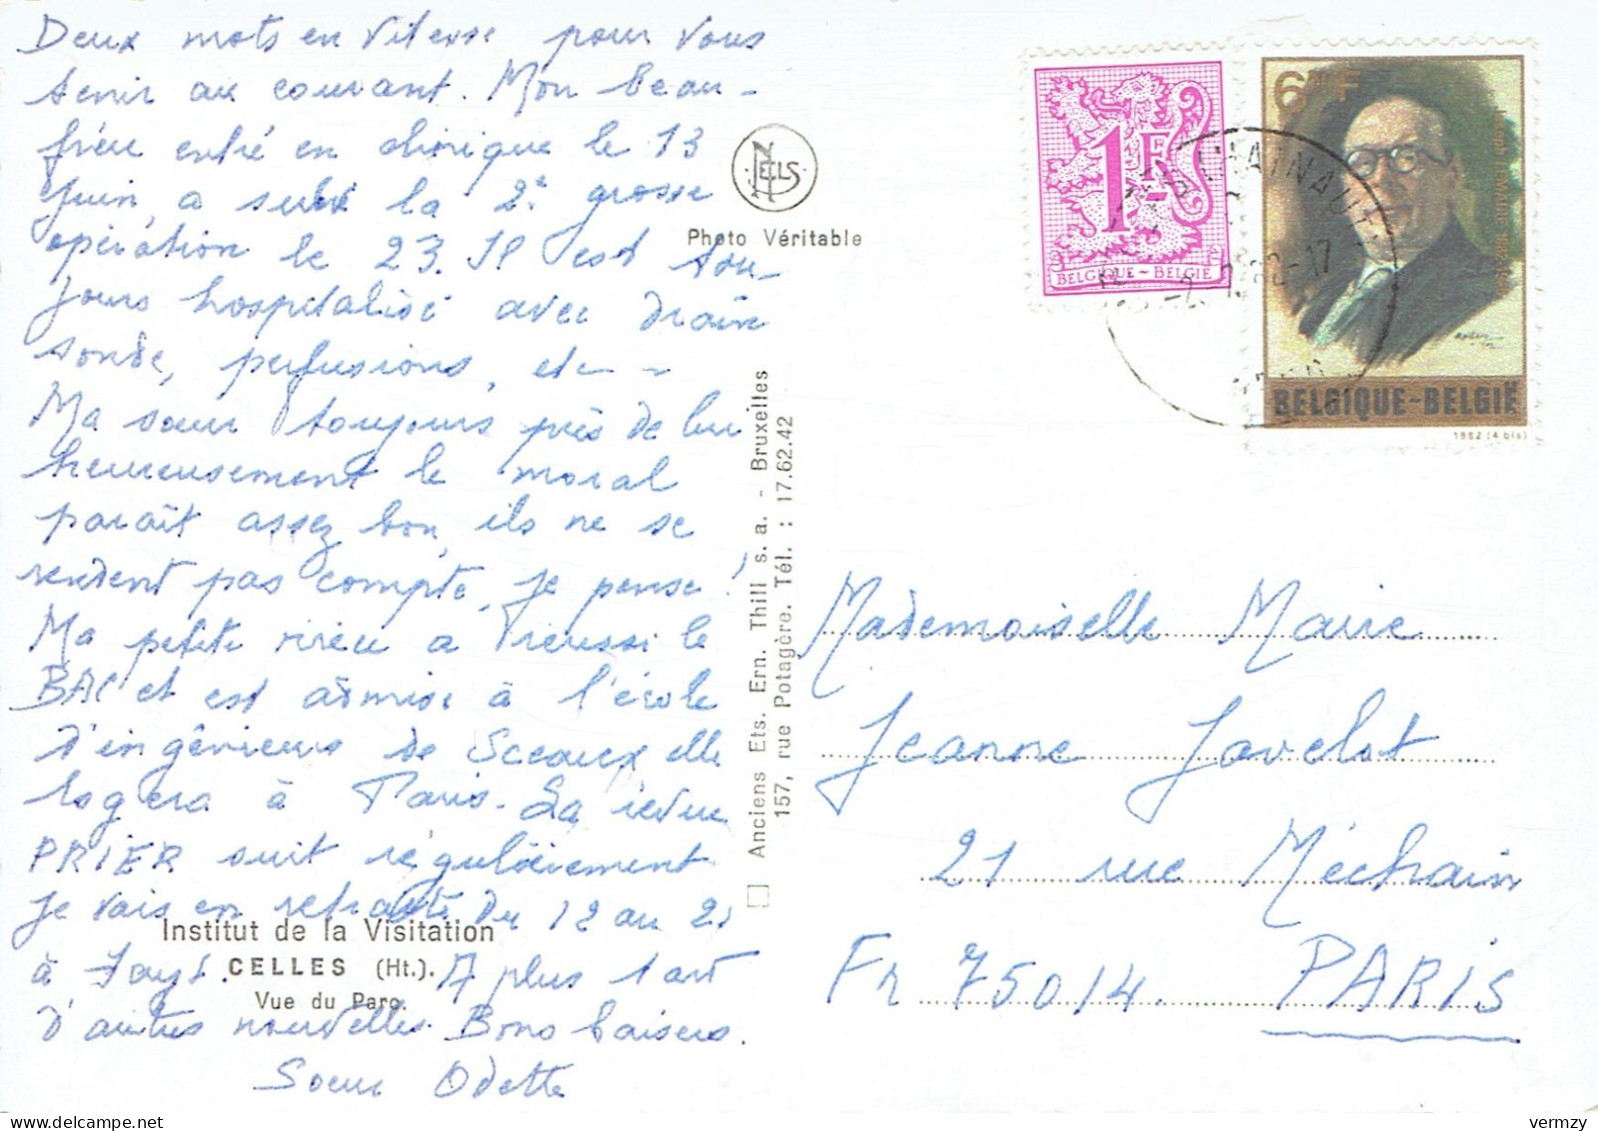 Deux mots en vitesse pour vous
tenir au courant. Mon beau-
frère entré en clinique le 13
juin, a subi la 2e grosse
opération le 23. Il est tou-
jours hospitalisé avec drain
sonde, perfusions, etc
Ma sœur toujours près de lui
heureusement le moral
paraît assez bon, ils ne se
rendent pas compte, je pense !
Ma petite nièce a réussi le
BAC et est admise à l'école
d'ingénieurs de Sceaux elle
logera à Paris. La revue
PRIER suit régulièrement
je vais en retraite du 12 au 21
à Fayt. A plus tard
d'autres nouvelles. Bons baisers.
Soeur Odette
Institut de la Visitation
CELLES (Ht.).
Vue du Parc.
NELS
Photo Véritable
Anciens Ets. Ern. Thill s. a. - Bruxelles
157, rue Potagère. Tél. : 17.62.42
1F
BELGIQUE-BELGIË
6F
BELGIQUE-BELGIË
1982 (4 bis)
Mademoiselle Marie
Jeanne Javelot
21 rue Méchain
Fr 75014 PARIS
vermzy